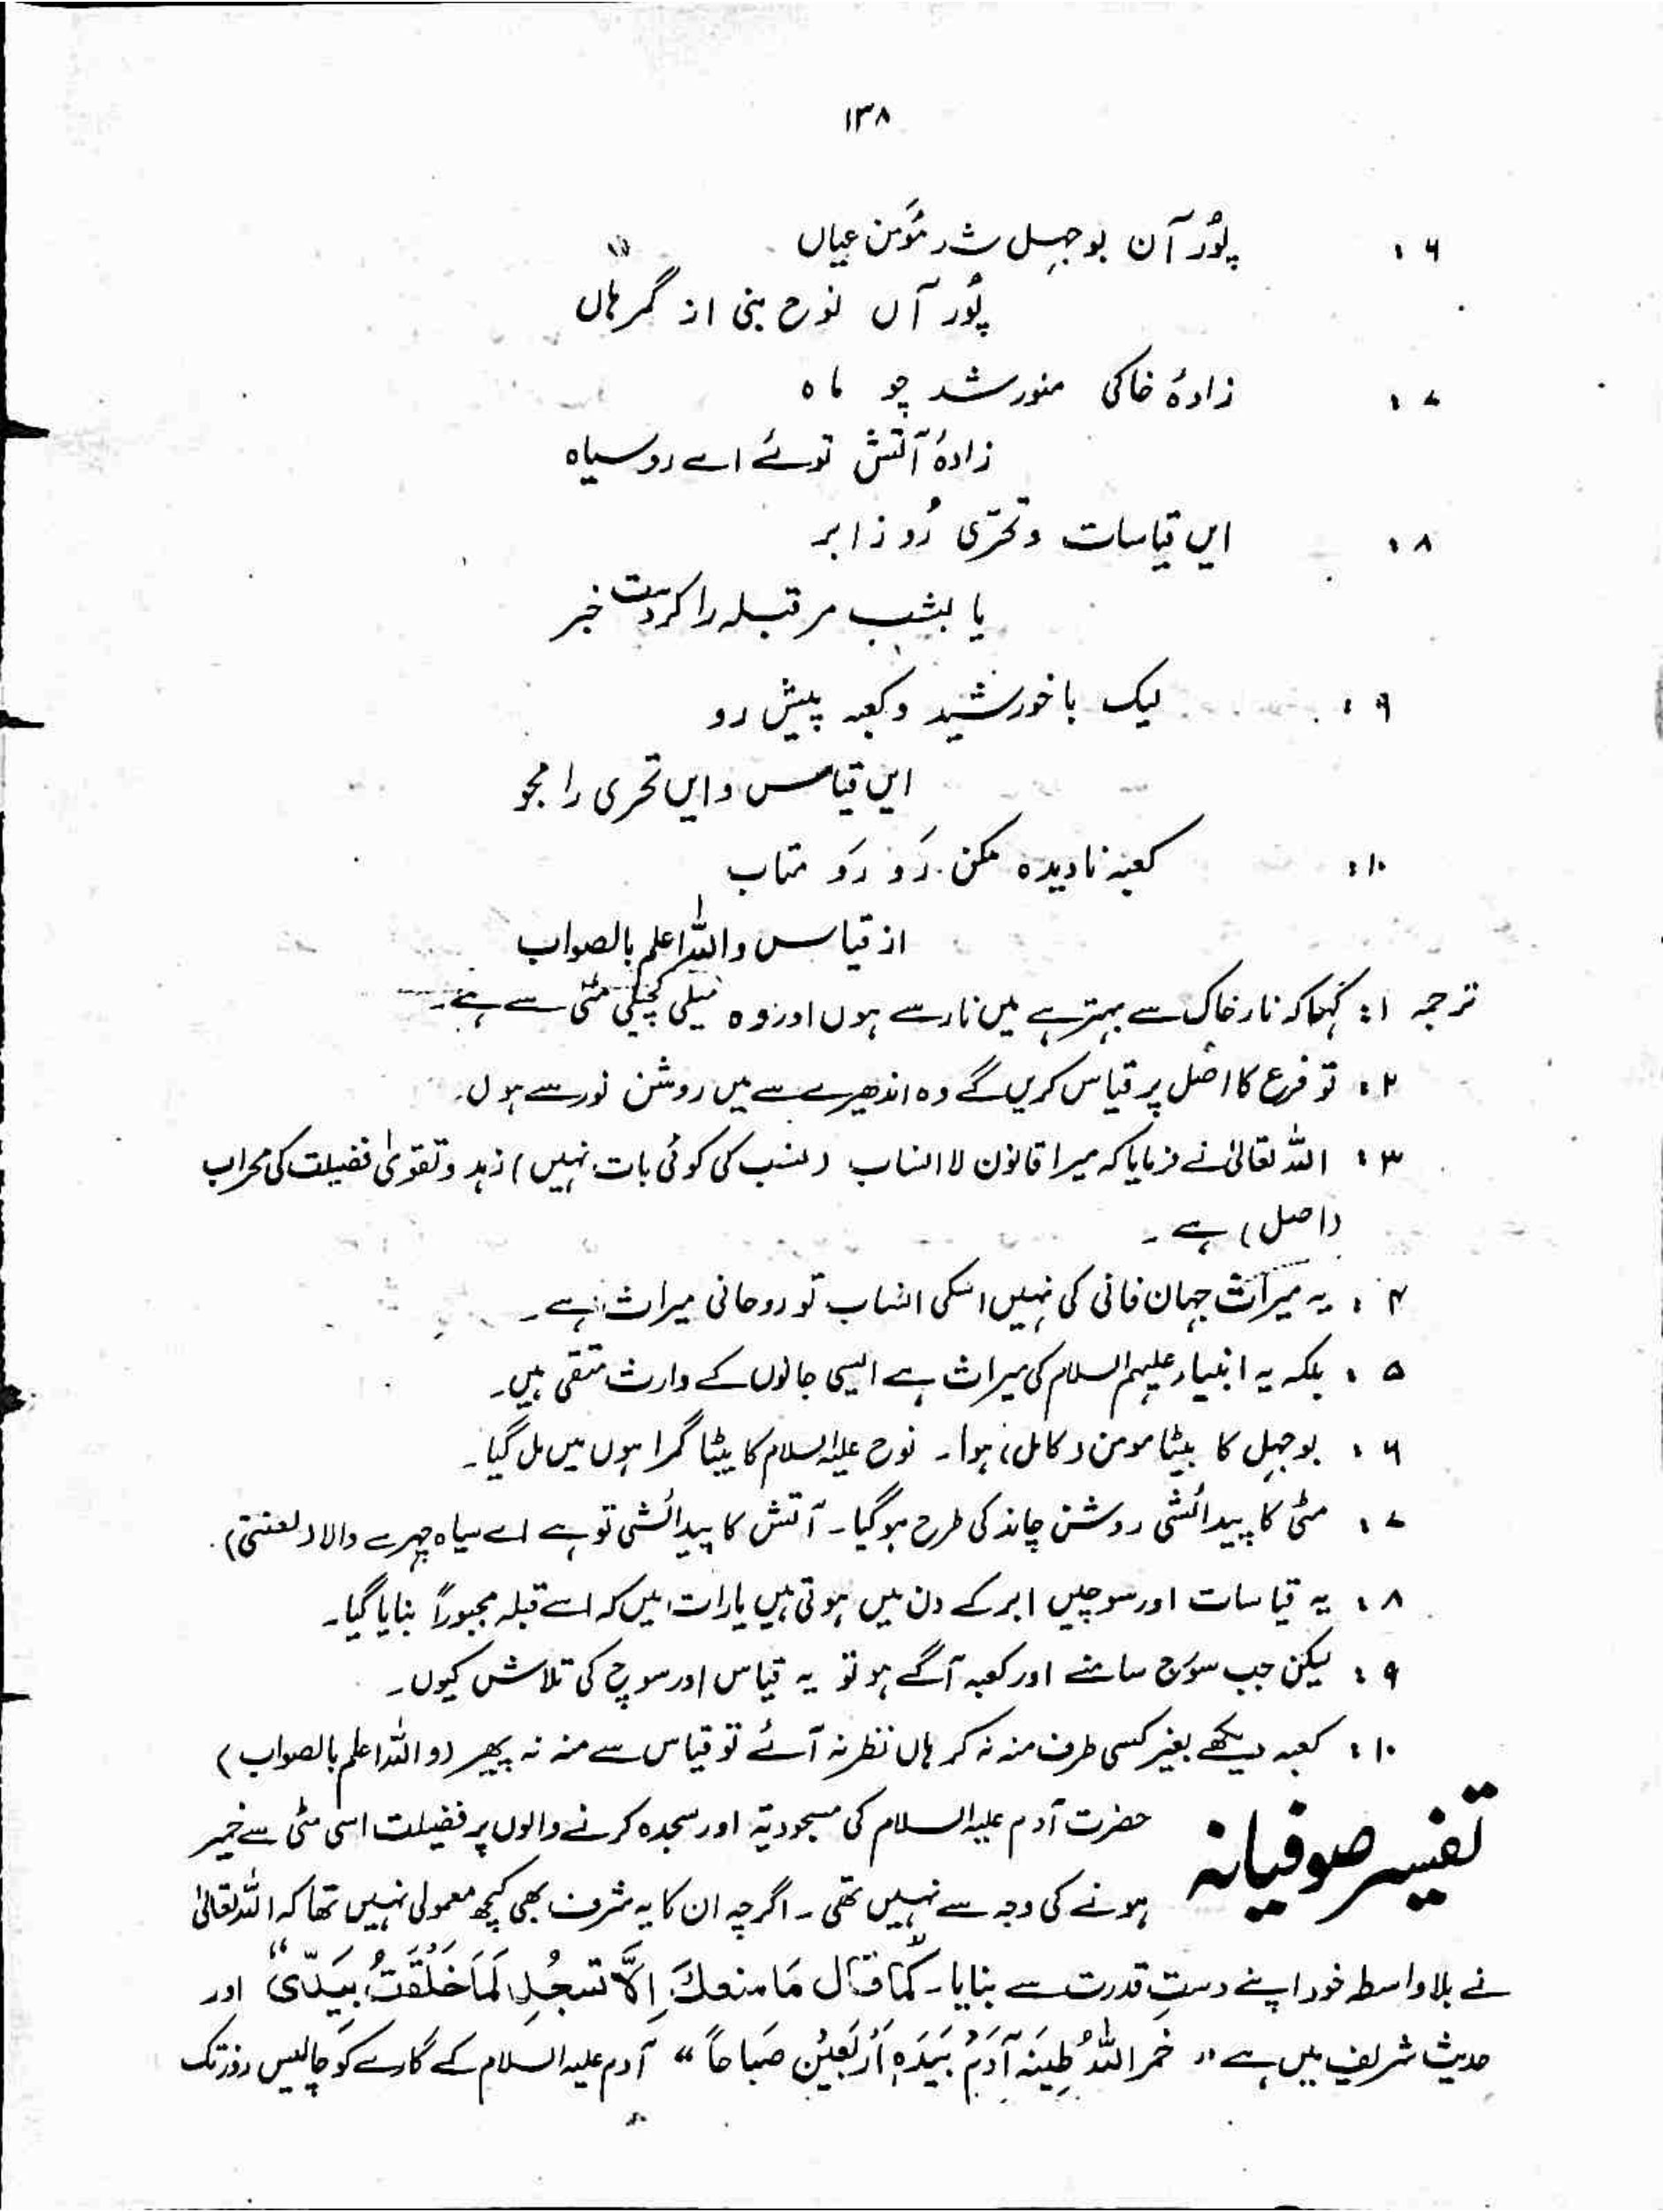 ۱۳۸
۶ : پُور آن بوجہل شد مؤمن عیاں
پُور آں نوح نبی از گمرہاں
۷ : زادۂ خاکی منور شد چو ماہ
زادۂ آتش توئے اے روسیاہ
۸ : ایں قیاسات و تحرّی رُوز ابر
یا بشب مر قبلہ را کردست خبر
۹ : لیک با خورشید و کعبہ پیش رو
این قیاس و ایں تحری را مجو
۱۰ : کعبہ نادیدہ مکن رَو رَو متاب
از قیاس واللہ اعلم بالصواب
ترجمہ ۱ : کہا کہ نار خاک سے بہتر ہے میں نار سے ہوں اور وہ میلی کچیلی مٹی سے ہے۔
۲ : تو فرع کا اصل پر قیاس کریں گے وہ اندھیرے سے میں روشن نور سے ہوں۔
۳ : اللہ تعالیٰ نے فرمایا کہ میرا قانون لا انساب (نسب کی کوئی بات نہیں) زہد و تقویٰ فضیلت کی محراب
(اصل) ہے۔
۴ : یہ میراث جہان فانی کی نہیں اسکی انساب تو روحانی میراث ہے۔
۵ : بلکہ یہ انبیاء علیہم السلام کی میراث ہے ایسی جانوں کے وارث متقی ہیں۔
۶ : بوجہل کا بیٹا مومن (کامل) ہوا۔ نوح علیہ السلام کا بیٹا گمراہوں میں مل گیا۔
۷ : مٹی کا پیدائشی روشن چاند کی طرح ہوگیا۔ آتش کا پیدائشی تو ہے اے سیاہ چہرے والا (لعنتی)۔
۸ : یہ قیاسات اور سوچیں ابر کے دن میں ہوتی ہیں یا رات میں کہ اسے قبلہ مجبوراً بنایا گیا۔
۹ : لیکن جب سورج سامنے اور کعبہ آگے ہو تو یہ قیاس اور سوچ کی تلاش کیوں۔
۱۰ : کعبہ دیکھے بغیر کسی طرف منہ نہ کر ہاں نظر نہ آئے تو قیاس سے منہ نہ پھیر (واللہ اعلم بالصواب)
تفسیر صوفیانہ حضرت آدم علیہ السلام کی مسجودیّہ اور سجدہ کرنے والوں پر فضیلت اسی مٹی سے خمیر
ہونے کی وجہ سے نہیں تھی۔ اگرچہ ان کا یہ شرف بھی کچھ معمولی نہیں تھا کہ اللہ تعالیٰ
نے بلاواسطہ خود اپنے دستِ قدرت سے بنایا۔ کَمَا قَال مَا منعکَ اِلَّا تسجُدِ لَمَا خَلَقَتُ بِیَدَیّ“ اور
حدیث شریف میں ہے ”خمر اللہُ طِینَہ آدَمُ بَیَدَہٖ اَرْبَعِیْن صَبَاحاً“ آدم علیہ السلام کے گارے کو چالیس روز تک